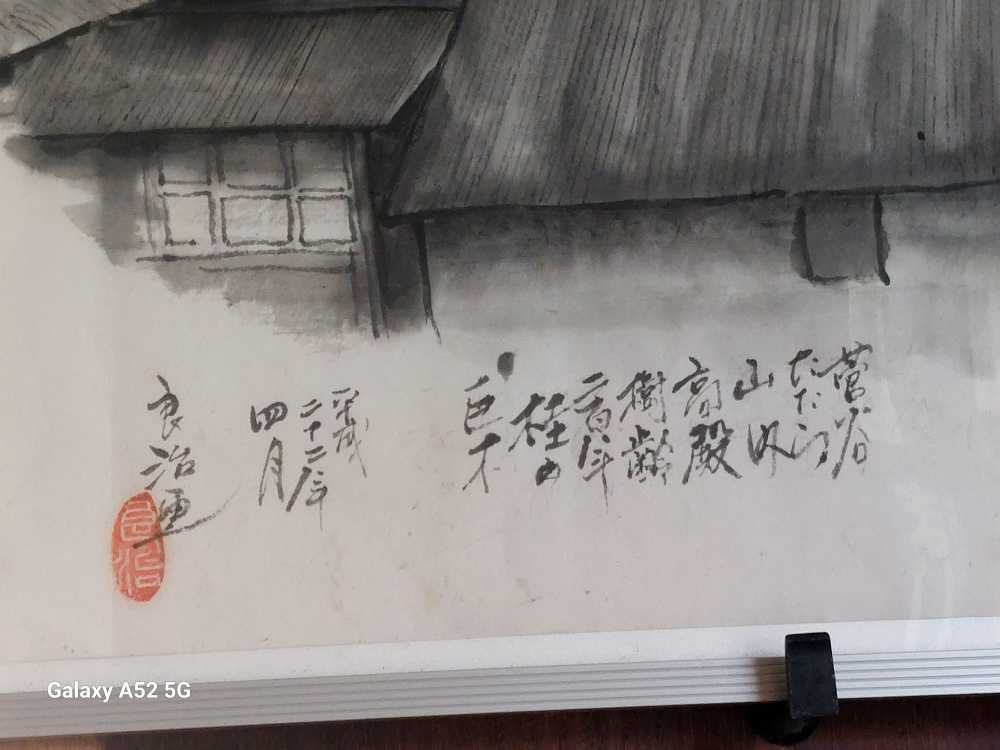 菅谷
たたら
山内
高殿
樹齢
二百年
桂の
巨木
平成
二十二年
四月
良治画
良治
Galaxy A52 5G